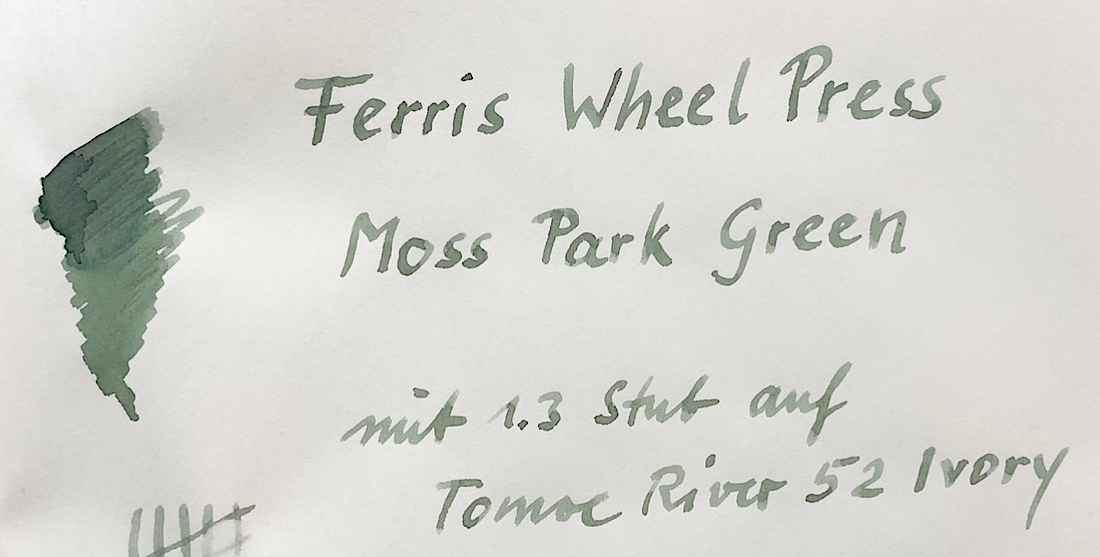 Ferris Wheel Press
Moss Park Green
mit 1.3 Stub auf
Tomoe River 52 Ivory